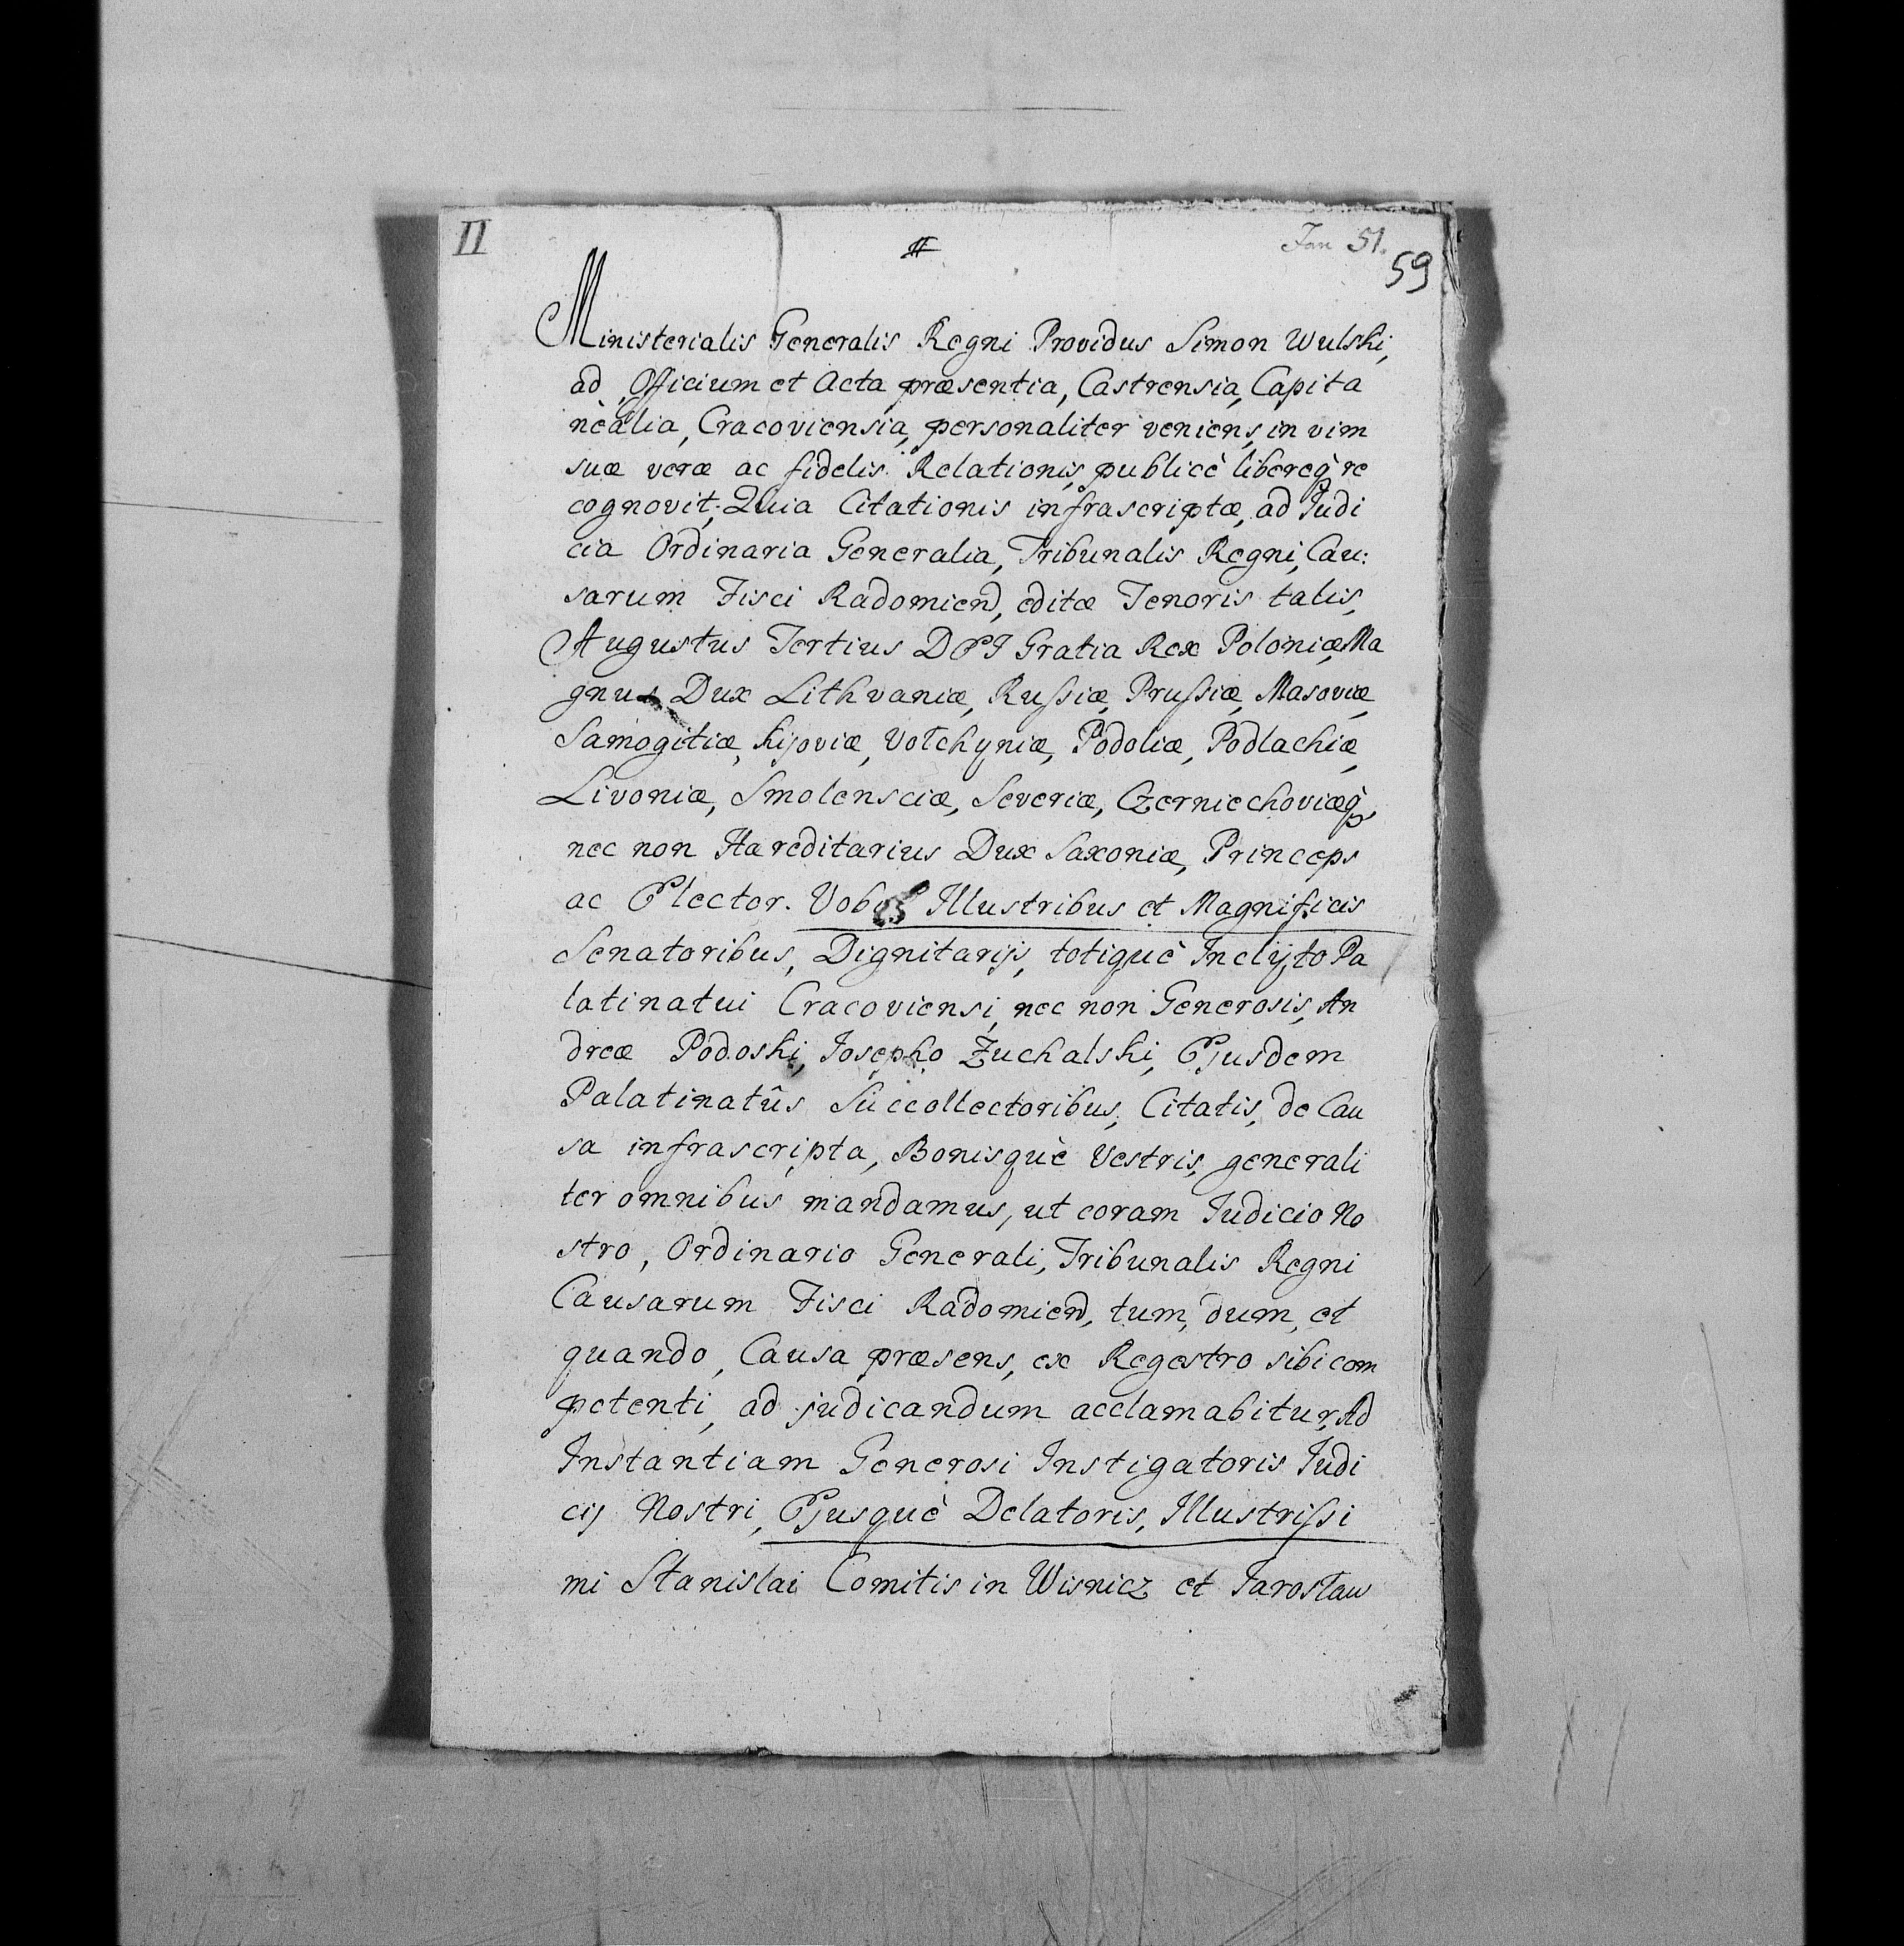 II
Jan 51.
59
Ministerialis Generalis Regni Providus Simon Wulski,
ad Officium et Acta præsentia, Castrensia, Capita
neàlia, Cracoviensia, personaliter veniens, in vim
suæ veræ ac fidelis Relationis, publicè libereq̀ re
cognovit; Quia Citationis infrascriptæ, ad Judi
cia Ordinaria Generalia, Tribunalis Regni, Cau:
sarum Fisci Radomien, editæ Tenoris talis,
Augustus Tertius DEI Gratia Rex Poloniæ, Ma
gnus Dux Lithvaniæ, Rußiæ, Prußiæ, Masoviæ,
Samogitiæ, Kijoviæ, Vołchyniæ, Podoliæ, Podlachiæ,
Livoniæ, Smolensciæ, Severiæ, Czerniechoviæq̀,
nec non Hæreditarius Dux Saxoniæ, Princeps
ac Elector. Vobis Illustribus et Magnificis
Senatoribus, Dignitarijs, totiquè Inclÿto Pa
latinatui Cracoviensi, nec non Generosis, An
dreæ Podoski, Josepho Żuchalski, Ejusdem
Palatinatûs Succollectoribus, Citatis, de Cau
sa infrascripta, Bonisquè Vestris, generali
ter omnibus mandamus, ut coram Judicio No
stro, Ordinario Generali, Tribunalis Regni
Causarum Fisci Radomien, tum, dum, et
quando, Causa præsens, ex Regestro sibi com
petenti, ad judicandum acclamabitur, Ad
Instantiam Generosi Instigatoris Judi
cij Nostri, Ejusquè Delatoris, Illustrißi
mi Stanislai Comitis in Wisnicz et Jarosław